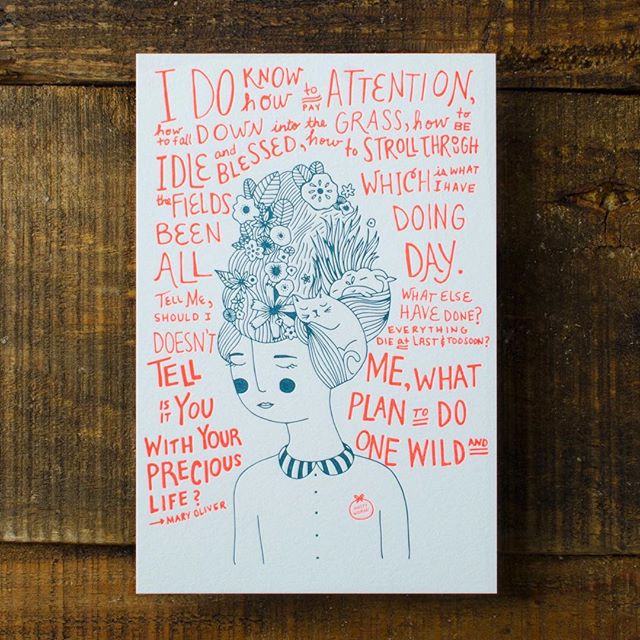 I DO KNOW how to PAY ATTENTION,
how to fall DOWN into the GRASS, how to BE
IDLE and BLESSED, how to STROLL THROUGH
the FIELDS WHICH is WHAT I HAVE
BEEN DOING
ALL DAY.
TELL ME, WHAT ELSE
SHOULD I HAVE DONE?
DOESN'T EVERYTHING
DIE at LAST & TOO SOON?
TELL ME, WHAT
IS IT YOU PLAN TO DO
WITH YOUR ONE WILD AND
PRECIOUS
LIFE?
→ MARY OLIVER